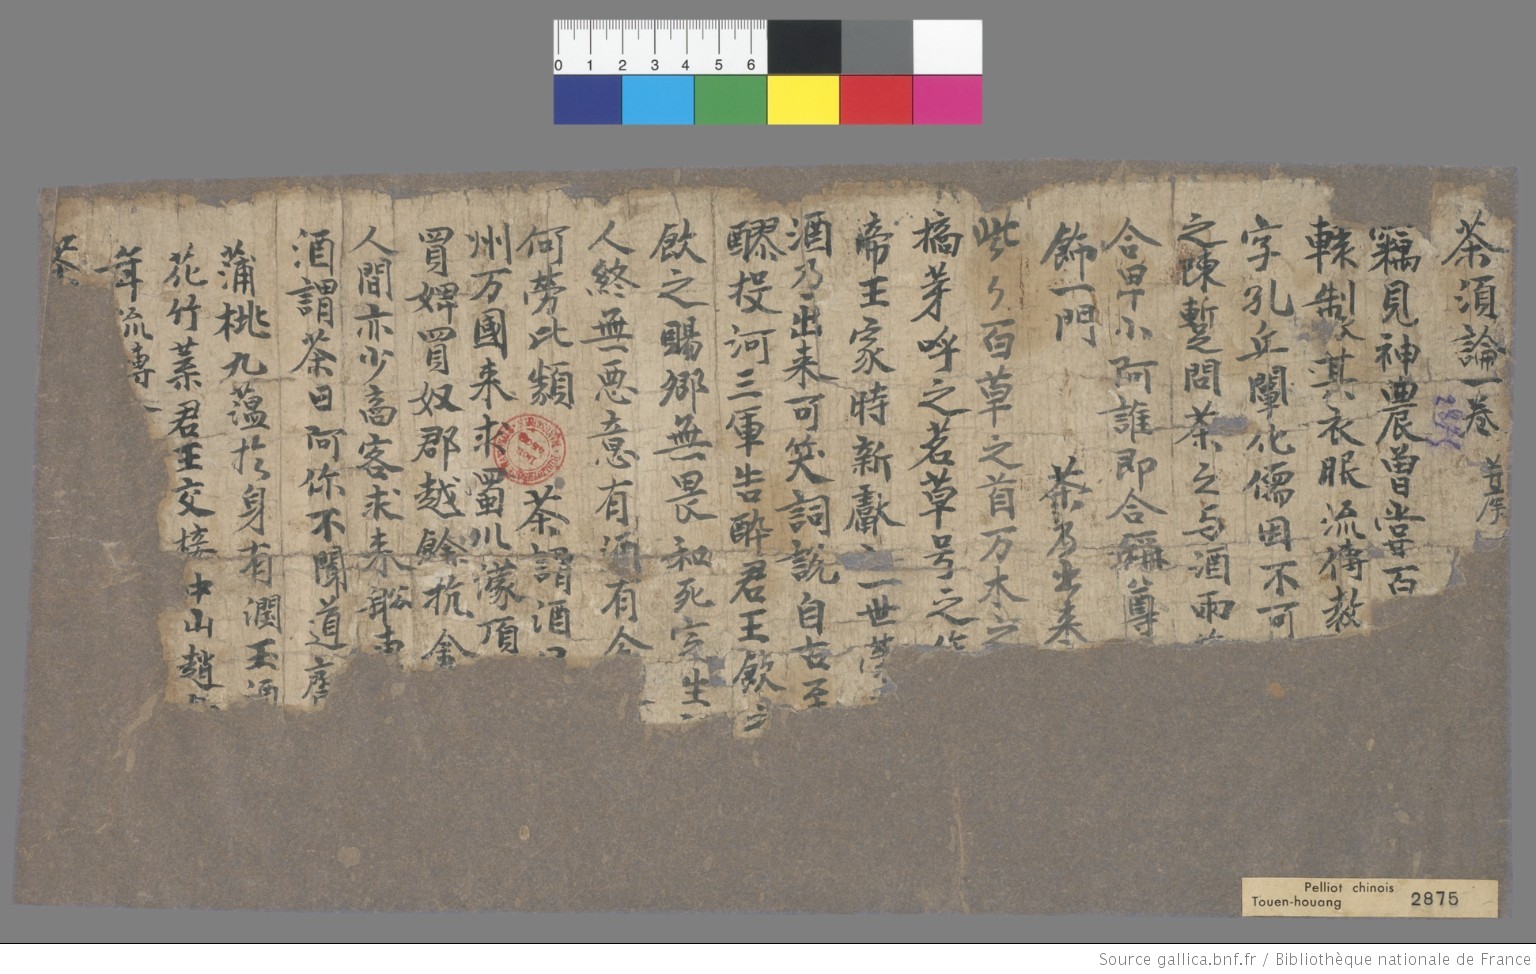 0 1 2 3 4 5 6
茶須論一卷 并序
竊見神農曾嘗百
軒轅制其衣服流傳教
字孔丘闡化儒因不可
之陳暫問茶之与酒兩
合卑小阿誰即合稱尊
飾一門 茶乃出来
百草之首万木之
摘芽呼之茗草号之作
帝王家時新獻一世榮
酒乃出来可笑詞說自古至
醪投河三軍告醉君王飲之
飲之賜卿無畏和死定生
人終無惡意有酒有令
何勞此類 茶謂酒曰
州万國来求蜀川濛頂
買婢買奴郡越餘杭金
人間亦少商客来求
酒謂茶曰阿你不聞道齊
蒲桃九醞於身有潤玉酒
花竹葉君王交接中山趙
年流傳
Pelliot chinois
Touen-houang 2875
Source gallica.bnf.fr / Bibliothèque nationale de France